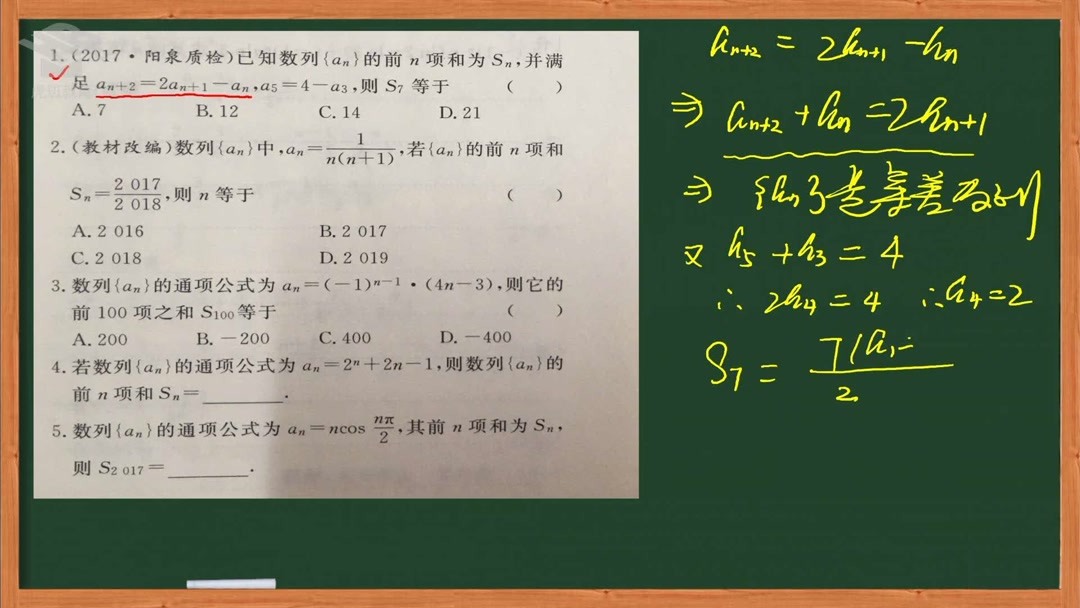 1. (2017·阳泉质检)已知数列{aₙ}的前 n 项和为 Sₙ,并满
足 aₙ₊₂=2aₙ₊₁-aₙ,a₅=4-a₃,则 S₇ 等于 ( )
A. 7 B. 12 C. 14 D. 21
2. (教材改编)数列{aₙ}中,aₙ=1/n(n+1),若{aₙ}的前 n 项和
Sₙ=2 017/2 018,则 n 等于 ( )
A. 2 016 B. 2 017
C. 2 018 D. 2 019
3. 数列{aₙ}的通项公式为 aₙ=(-1)ⁿ⁻¹·(4n-3),则它的
前 100 项之和 S₁₀₀等于 ( )
A. 200 B. -200 C. 400 D. -400
4. 若数列{aₙ}的通项公式为 aₙ=2ⁿ+2n-1,则数列{aₙ}的
前 n 项和 Sₙ=________.
5. 数列{aₙ}的通项公式为 aₙ=ncos nπ/2,其前 n 项和为 Sₙ,
则 S₂ ₀₁₇=________.
aₙ₊₂ = 2aₙ₊₁ - aₙ
⇒ aₙ₊₂ + aₙ = 2aₙ₊₁
⇒ {aₙ}是等差数列
又 a₅ + a₃ = 4
∴ 2a₄ = 4 ∴ a₄ = 2
S₇ = 7(a₁+/2